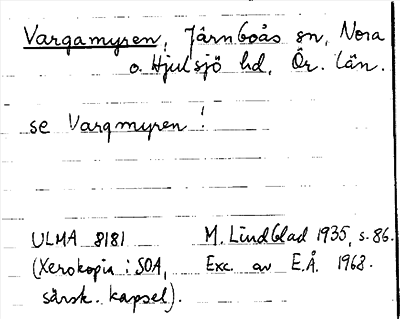 Vargamyren, Järnboås sn, Nora
o. Hjulsjö hd, Ör. län.
se Vargmyren!
ULMA 8181 M. Lindblad 1935, s. 86.
(Xerokopia i SOA, Exc. av E.Å. 1968.
särsk. kapsel).